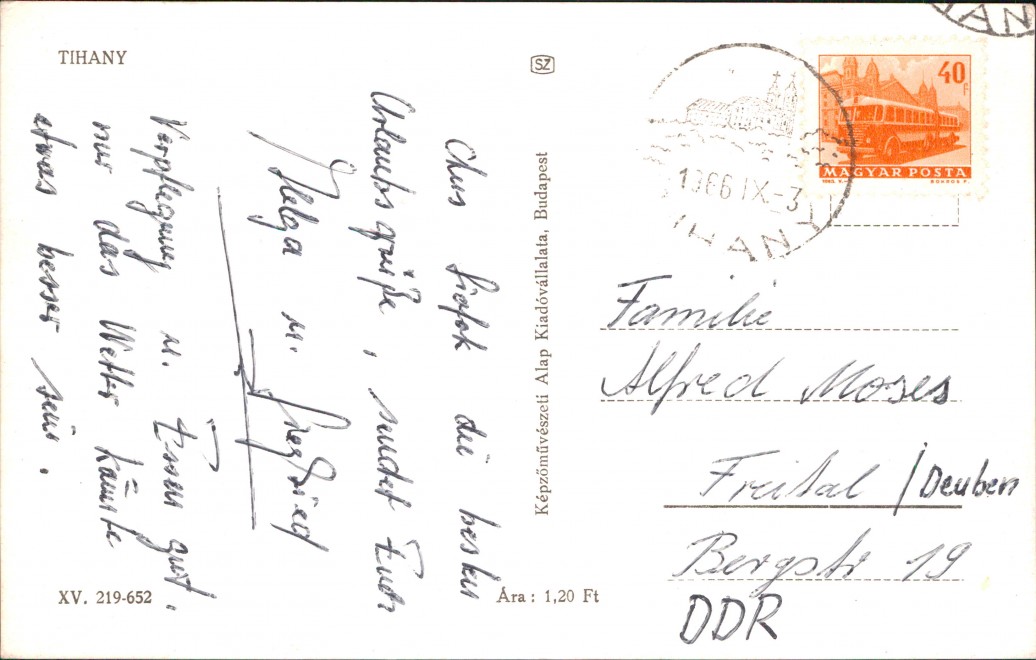 TIHANY
SZ
Aus Siofok die besten
Urlaubsgrüße, sendet Euch
Helga u. Siegfried
Verpflegung u. Essen gut,
nur das Wetter könnte
etwas besser sein.
XV. 219-652
Képzőművészeti Alap Kiadóvállalata, Budapest
Ára: 1,20 Ft
IHANY
1966 IX-3
IHANY
40 f
MAGYAR POSTA
Familie
Alfred Moses
Freital / Deuben
Bergstr 19
DDR